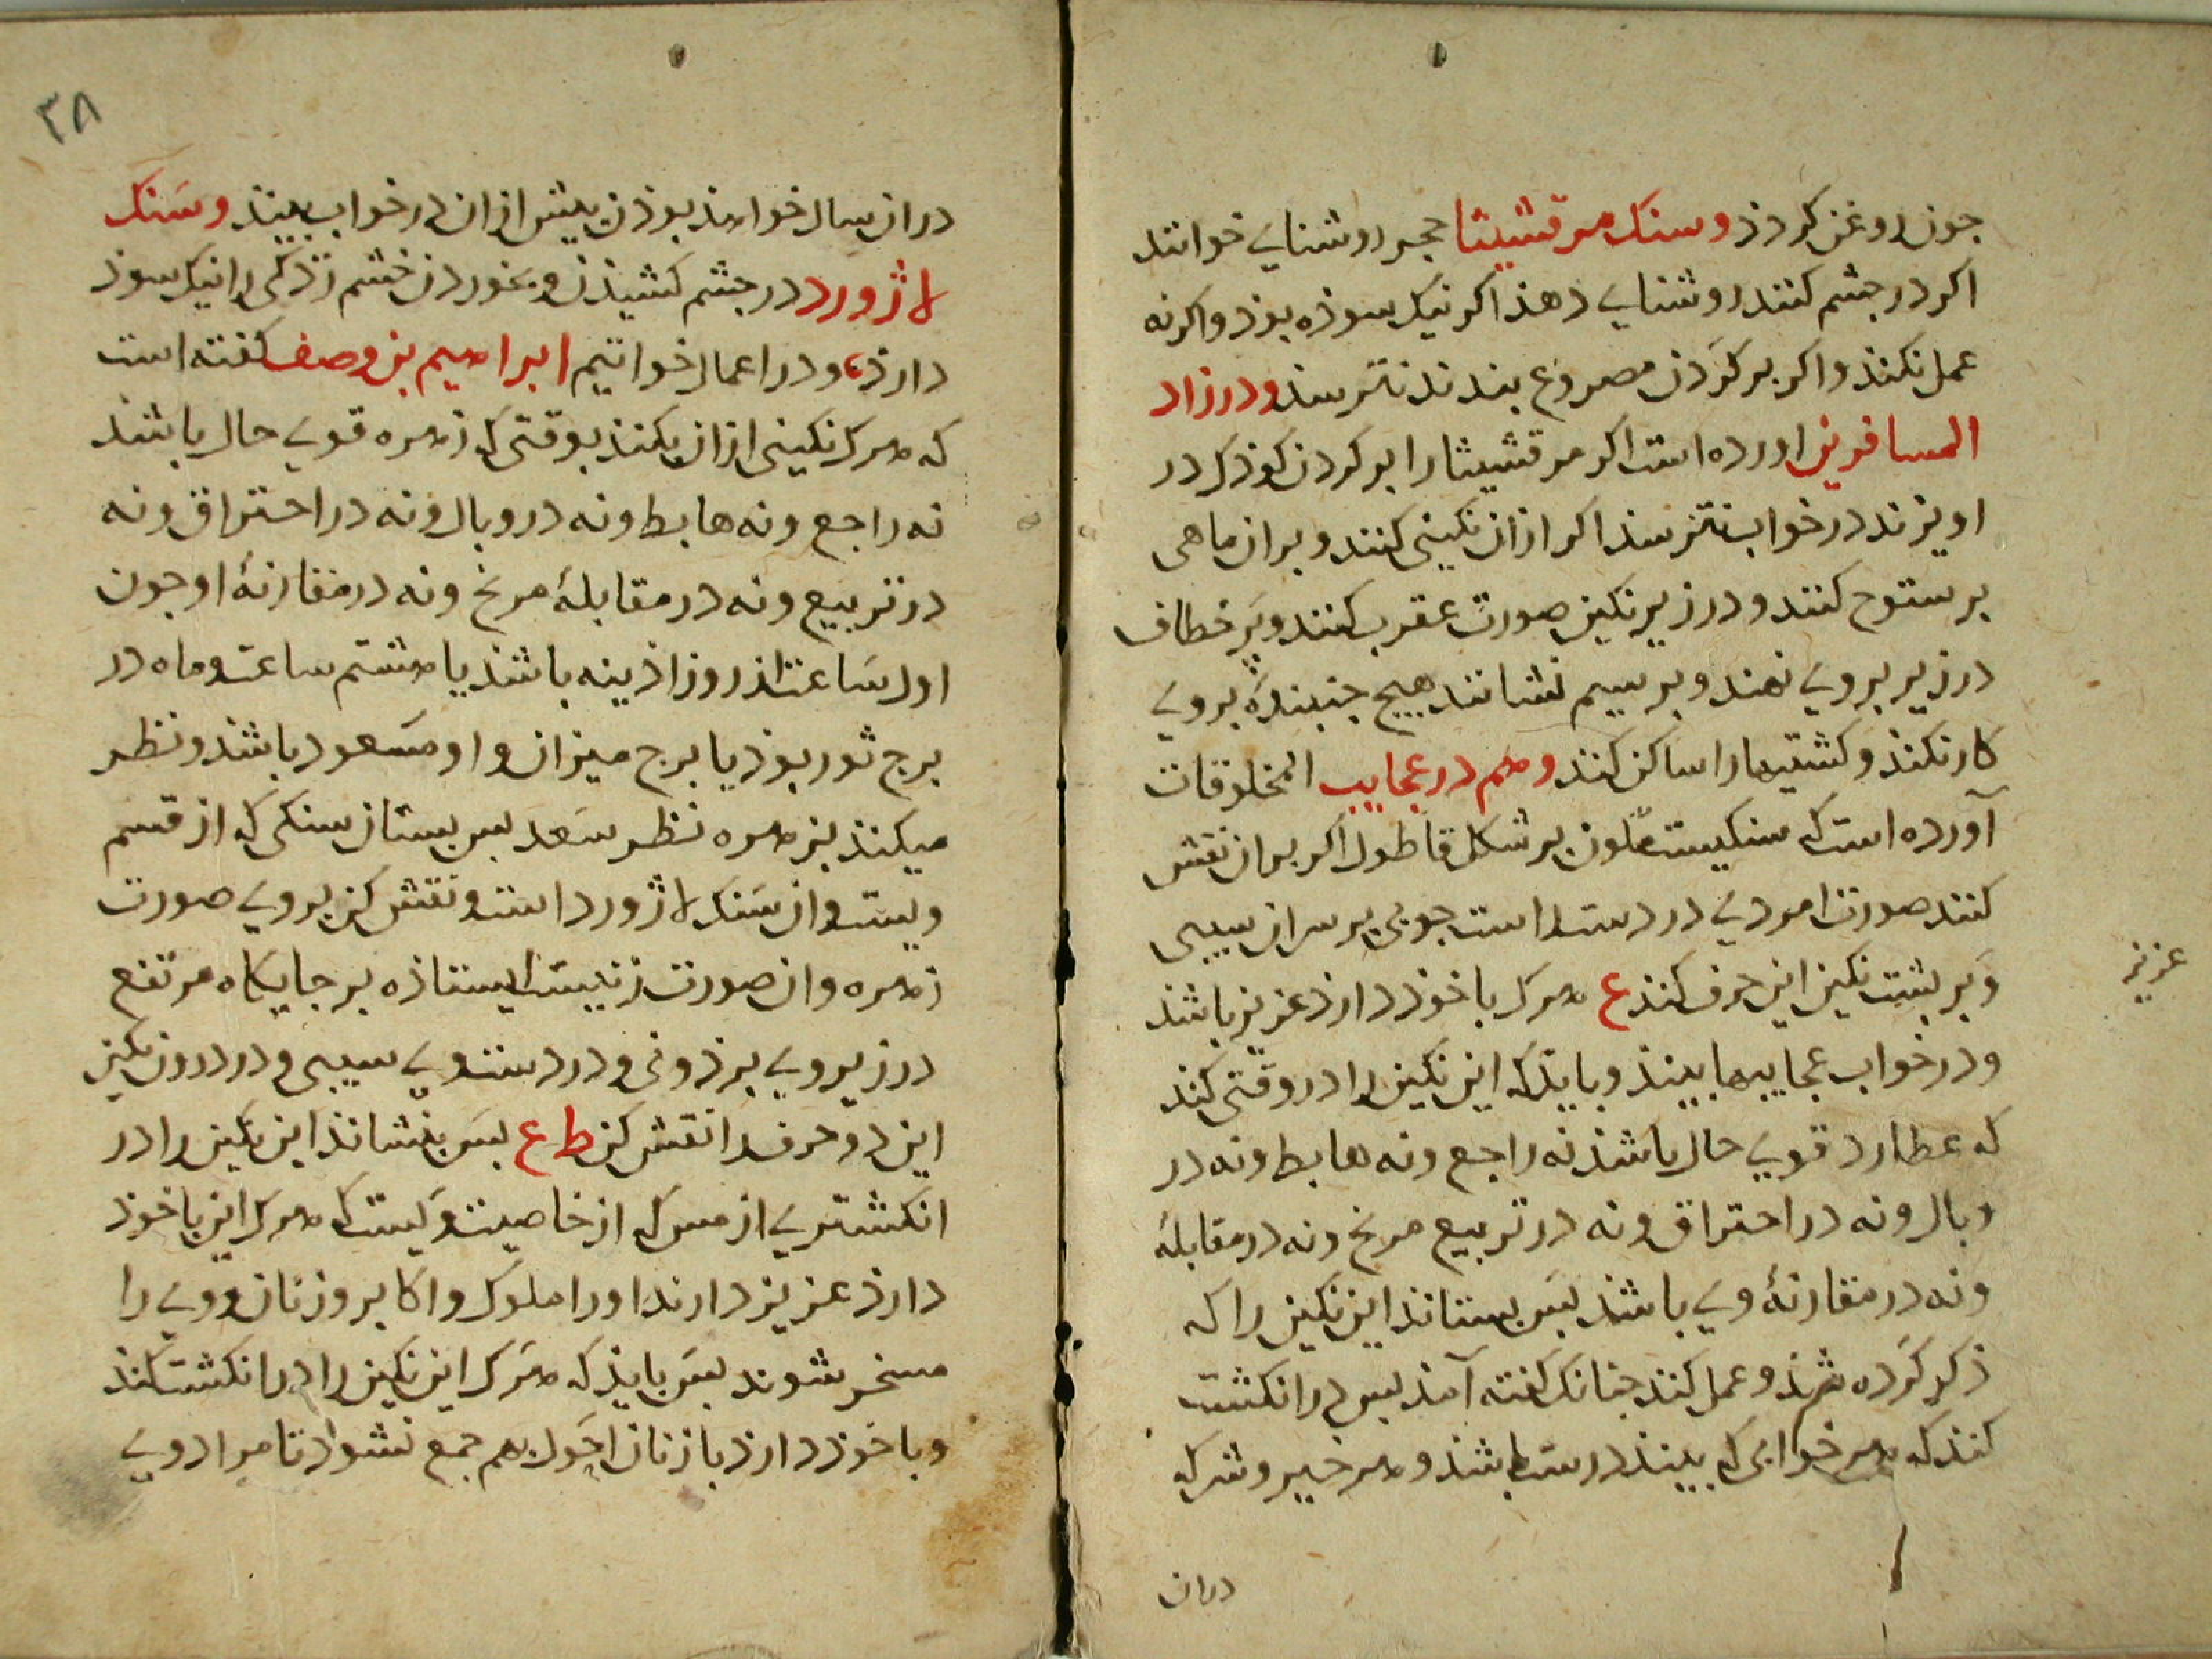 جون روغن کردذ و سنک مرقشیشا حجر روشنایی خوانند
اکر در جشم کنند روشنایی دهذ اکر نیک سوذه بوذ واکرنه
عمل نکنذ واکر بر کردن مصروع بندند نترسد ودر زاد
المسافرین اورده است اکر مرقشیثا را بر کردن کوذک در
اویزند در خواب نترسذ اکر ازان نکینی کنند و بران ماهی
برستوح کنند و در زیر نکین صورت عقرب کنند و پر خطاف
در زیر بروی نهند و بر سیم نشانند هیج جنبندۀ بروی
کار نکند و کشتیها را ساکن کند وهم در عجایب المخلوقات
آورده است که سنکیست ملون بر شکل قاطول اکر بران نقش
کنند صورت امردی در دست راست جوبی بر سر ان سیبی
و بر بشت نکین این حرف کنند ع هرک با خوذ دارذ عزیز باشذ
و در خواب عجایبها بیند و بایذ که این نکین را در وقتی کند
که عطارد قوی حال باشذ نه راجع و نه هابط و نه در
وبال و نه در احتراق و نه در تربیع مریخ و نه در مقابلۀ
و نه در مقارنۀ وی باشذ بس بستانذ این نکین را که
ذکر کرده شذ و عمل کند جنانک کفته آمذ بس در انکشت
کنذ که هر خوابی که بیند درست باشذ و هر خیر و شر که
دران
عزیز
۳۸
دران سال خواهذ بوذن بیش ازان در خواب بیند و سنک
لاژورد در جشم کشیذن و بخوردن خشم زدکی را نیک سوذ
دارذ، و در اعمال خواتیم ابراهیم بن وصف کفته است
که هرک نکینی ازان بکنذ بوقتی که زهره قوی حال باشذ
نه راجع و نه هابط و نه در وبال و نه در احتراق و نه
در تربیع و نه در مقابلۀ مریخ و نه در مقارنۀ او جون
اول ساعت از روز اذینه باشذ یا هشتم ساعت و ماه در
برج ثور بوذ یا برج میزان و او مسعود باشذ و نظر
میکنذ بزهره نظر سعد بس بستان سنکی که از قسم
ویست وان سنک لاژورد است و نقش کن بروی صورت
زهره وان صورت زنیست ایستاذه بر جایکاه مرتفع
در زیر وی برذونی و در دست وی سیبی و در درون نکین
این دو حرف را نقش کن ط ع بس بنشاند این نکین را در
انکشتری از مس که از خاصیت ویست که هرک این با خوذ
دارذ عزیز دارند او را ملوک و اکابر و زنان و وی را
مسخر شوند بس بایذ که هرک این نکین را در انکشت کند
و با خوذ دارذ با زنان احول بهم جمع نشود تا مراد وی